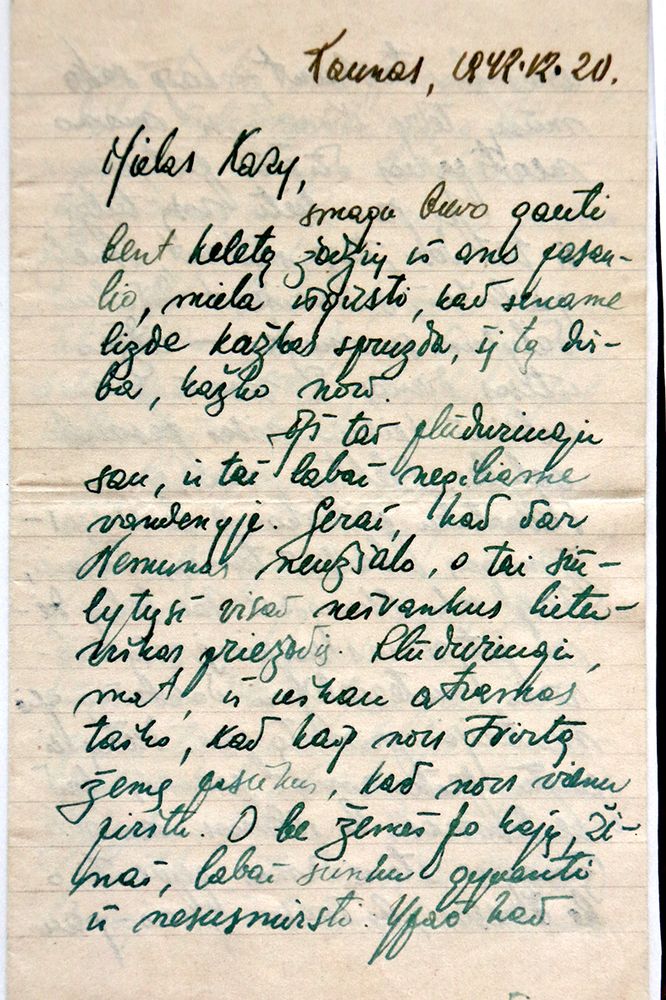 Kaunas, 1942.12.20.
Mielas Kazy,
smagu buvo gauti
bent keletą žodžių iš ano pasau-
lio, miela išgirsti, kad sename
lizde kažkas spruzda, šį tą dir-
ba, kažko nori.
Aš tai plūduringiu
sau, ir tai labai negiliame
vandenyje. Gerai, kad dar
Nemunas neužšalo, o tai siū-
lytųsi visai nešvankus lietu-
viškas priežodis. Plūduringiu,
mat, ir ieškau atramos
taško, kad kaip nors tvirtą
žemę pasiekus, kad nors vienu
pirštu. O be žemės po kojų, ži-
nai, labai sunku gyventi
ir nesusmirsti. Ypač kad